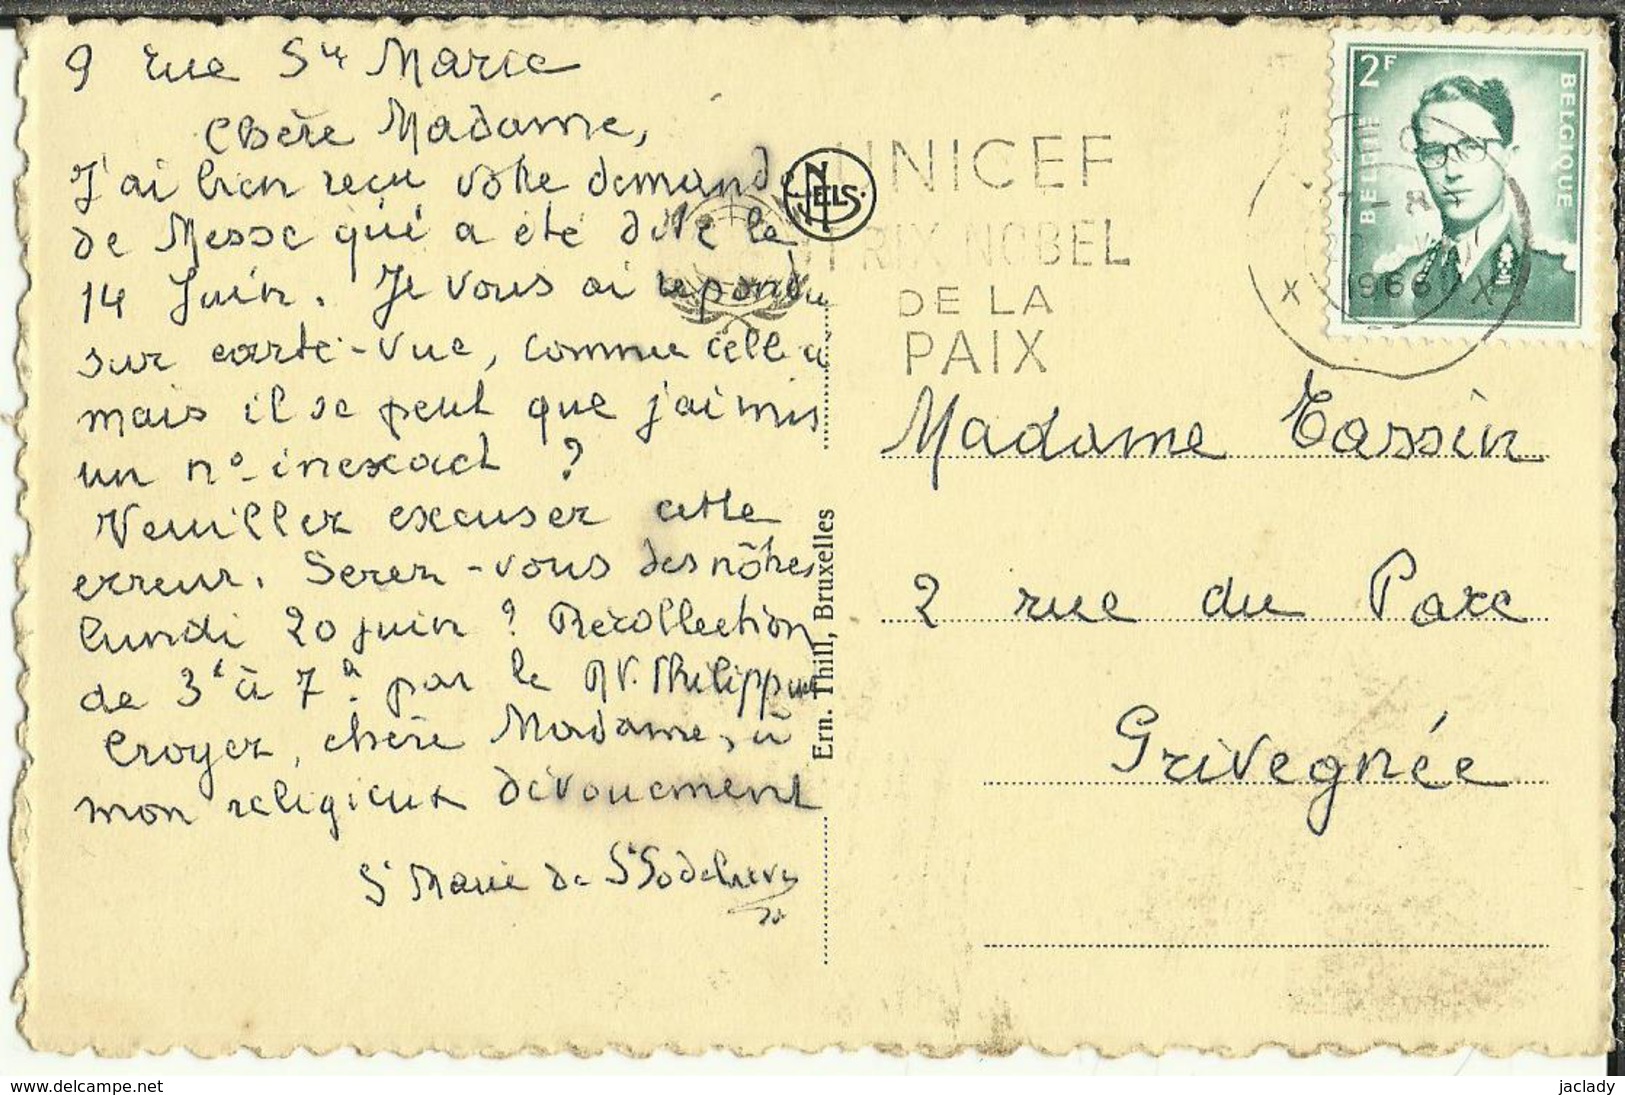 9 rue Ste Marie
Chère Madame,
J'ai bien reçu votre demande
de Messe qui a été dite le
14 Juin. Je vous ai répondu
sur carte-vue, comme celle ci
mais il se peut que j'ai mis
un n° inexact ?
Veuillez excuser cette
erreur. Serez-vous des nôtres
lundi 20 juin ? Récollection
de 3h à 7h par le RV. Philippe
Croyez, chère Madame, à
mon religieux dévouement
Sr Marie de St
NELS
Ern. Thill, Bruxelles
UNICEF
PRIX NOBEL
DE LA
PAIX
X 1966 X
2F
BELGIE BELGIQUE
Madame Tassin
2 rue du Parc
Grivegnée
www.delcampe.net
jaclady